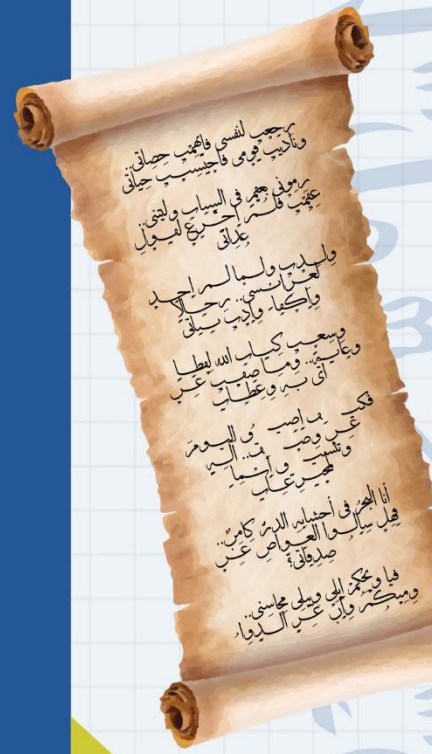 رجعت لنفسي فاتهمت حصاتي..
وناديت قومي فاحتسبت حياتي
رموني بعقم في الشباب وليتني..
عقمت فلم أجزع لقول
عداتي
ولدت ولما لم أجد
لعرائسي.. رجالا
وأكفاء وأدت بناتي
وسعت كتاب الله لفظا
وغاية.. وما ضقت عن
آي به وعظات
فك أضيق اليوم
عن وصف آلة
وتنسيق أسماء
لمخترعات
أنا البحر في أحشائه الدر كامن..
فهل سألوا الغواص عن
صدفاتي؟
فيا ويحكم أبلى وتبلى محاسني..
ومنكم وإن عز الدواء